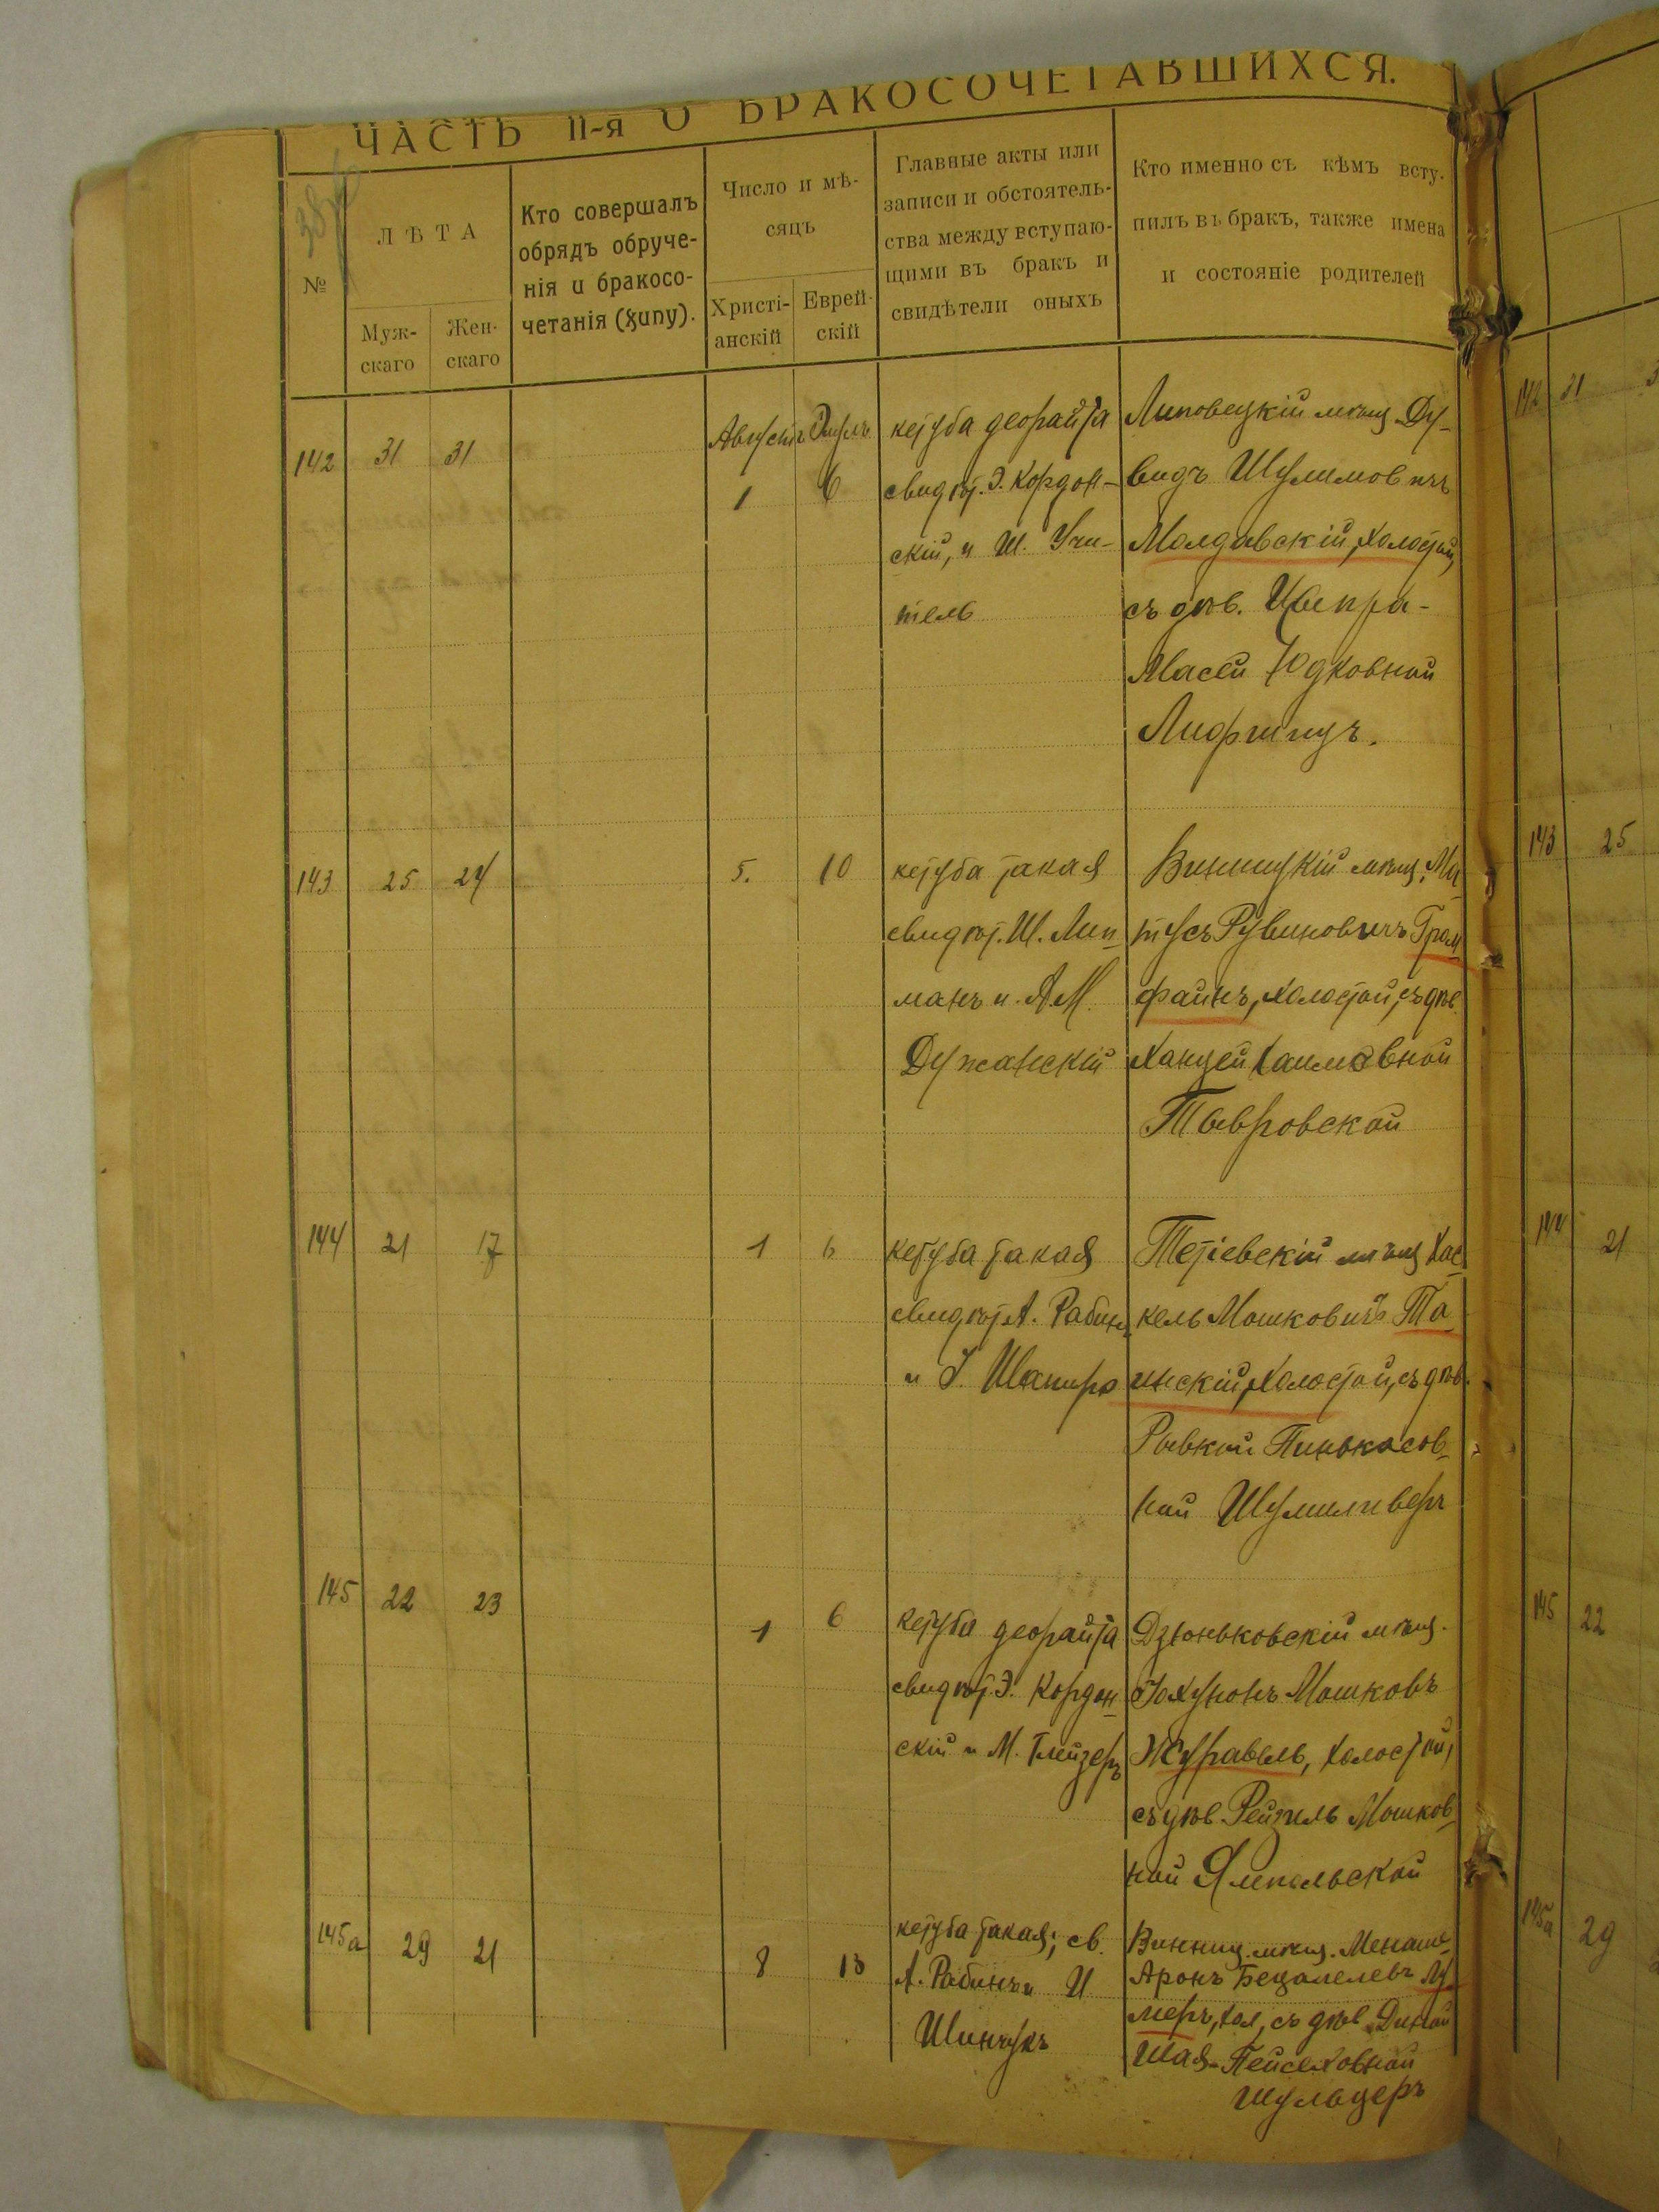 ЧАСТЬ II-я О БРАКОСОЧЕТАВШИХСЯ.
№
ЛѢТА
Муж-
скаго
Жен-
скаго
Кто совершалъ
обрядъ обруче-
нія и бракосо-
четанія (хупу).
Число и мѣ-
сяцъ
Христі-
анскій
Еврей-
скій
Главные акты или
записи и обстоятель-
ства между вступаю-
щими въ бракъ и
свидѣтели оныхъ
Кто именно съ кѣмъ всту-
пилъ въ бракъ, также имена
и состояніе родителей
142 31 31
Августъ
1
6
кетуба деорайта
свидѣт. Э. Кордон-
скій, и Ш. Учи-
тель
Липовецкій мѣщ. Ду-
видъ Шулимовичъ
Молдавскій, холостой,
съ дѣв.
Масей Юдковной
Лифшицъ.
143 25 24
5. 10
кетуба такая
свидѣт. Ш. Лип-
манъ и А М
Дужанскій
Винницкій мѣщ. Ма-
тусъ Рувиновичъ Гром-
файнъ, холостой, съ дѣв.
Ханцей Хаимовной
Тывровской
144 21 17
1 6
кетуба такая
свидѣт. А. Рабинъ
и І. Шапиро
Тетіевскій мѣщ. Хас-
кель Мошковичъ Та-
инскій, холостой, съ дѣв.
Рывкой Пинькасов-
ной
145 22 23
1 6
кетуба деорайта
свидѣт. Э. Кордон-
скій и М. Глейзеръ
Дзюньковскій мѣщ.
Іохунонъ Мошковъ
Журавель, холостой,
съ дѣв. Рейзель Мошков-
ной Ямпольской
145а 29 21
8 13
кетуба такая; св.
А. Рабинъ и И
Шинчукъ
Винниц. мѣщ. Менаше-
Аронъ Бецалелевъ
меръ, хол, съ дѣв. Диной
Шая-Пейсеховной
Шульцеръ
142 31
143 25
144 21
145 22
145а 29